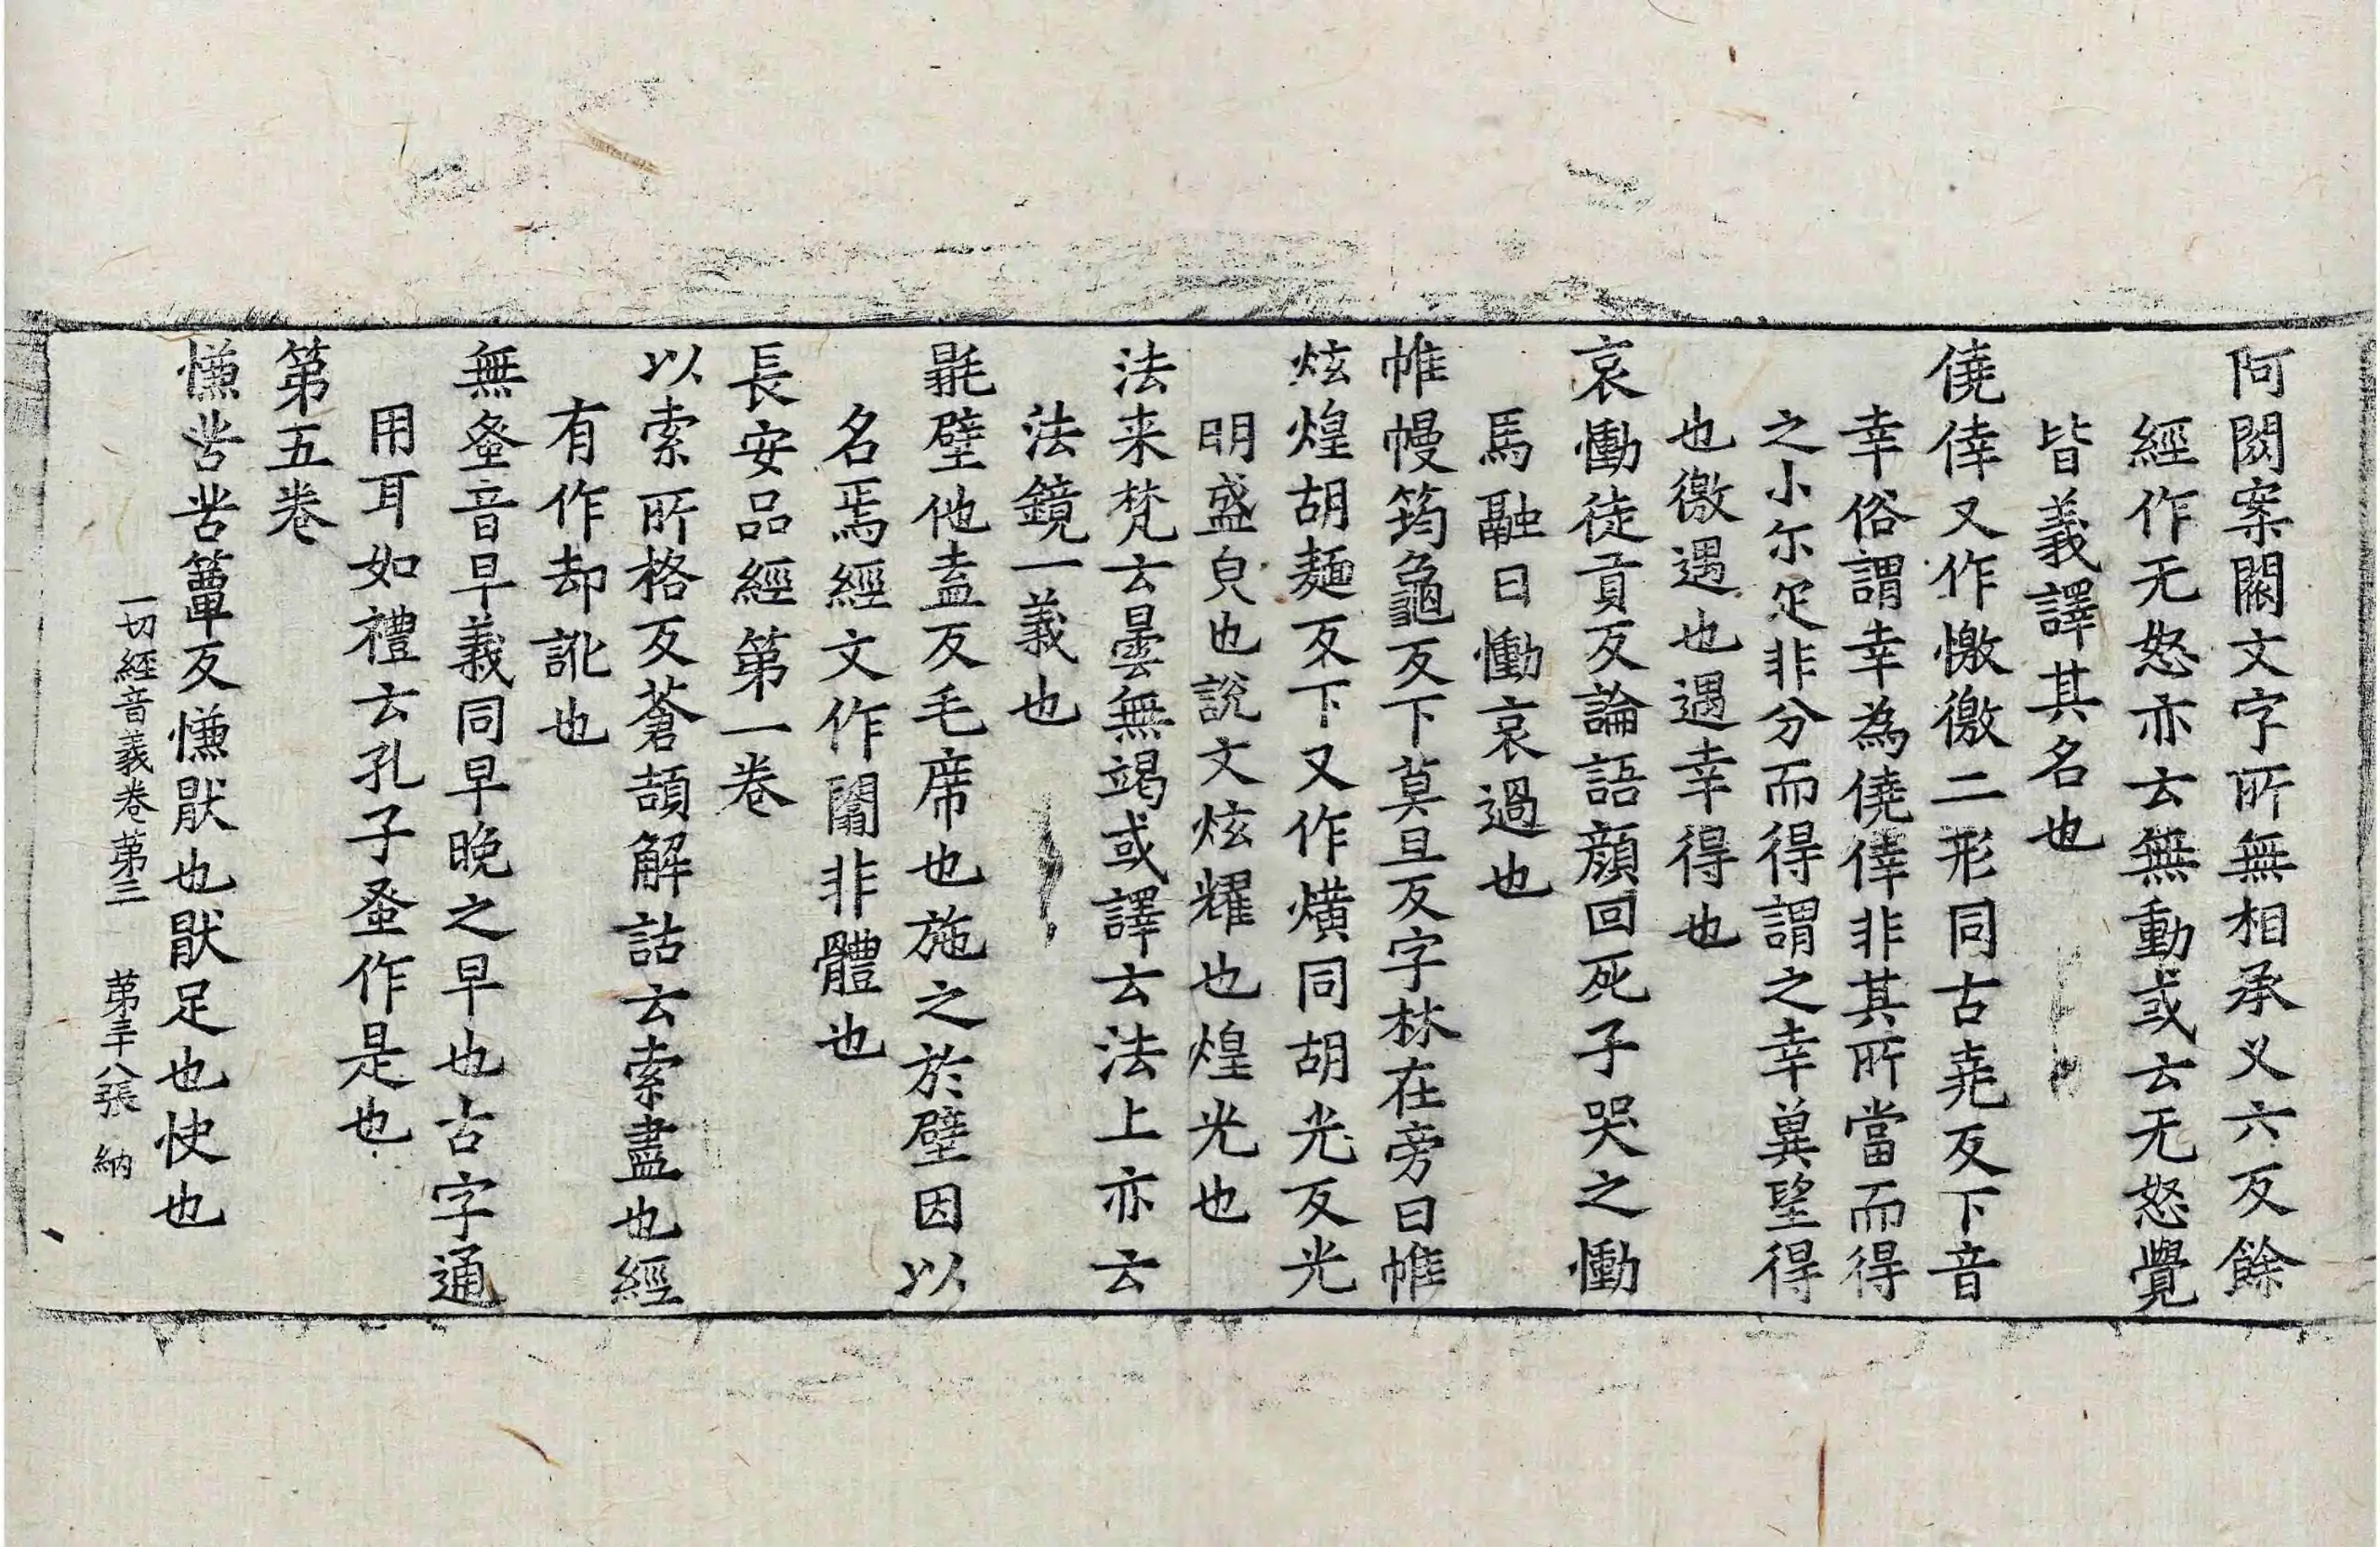 阿閦案閦文字所無相承义六反餘
經作无怒亦云無動或云无怒覺
皆義譯其名也
僥倖又作憿徼二形同古尭反下音
幸俗謂幸為僥倖非其所當而得
之小尓疋非分而得謂之幸兾望得
也徼遇也遇幸得也
哀慟徒貢反論語顔回死子哭之慟
馬融曰慟哀過也
帷幔筠龜反下莫旦反字林在旁曰帷
炫煌胡麺反下又作熿同胡光反光
明盛皃也說文炫耀也煌光也
法来梵云曇無竭或譯云法上亦云
法鏡一義也
㲩壁他盍反毛席也施之於壁因以
名焉經文作闒非體也
長安品經第一卷
以索所格反蒼頡解詁云索盡也經
有作却訛也
無蚤音早義同早晚之早也古字通
用耳如禮云孔子蚤作是也
第五卷
慊苦苦簟反慊猒也猒足也快也
一切經音義卷苐三 苐三十八張 納